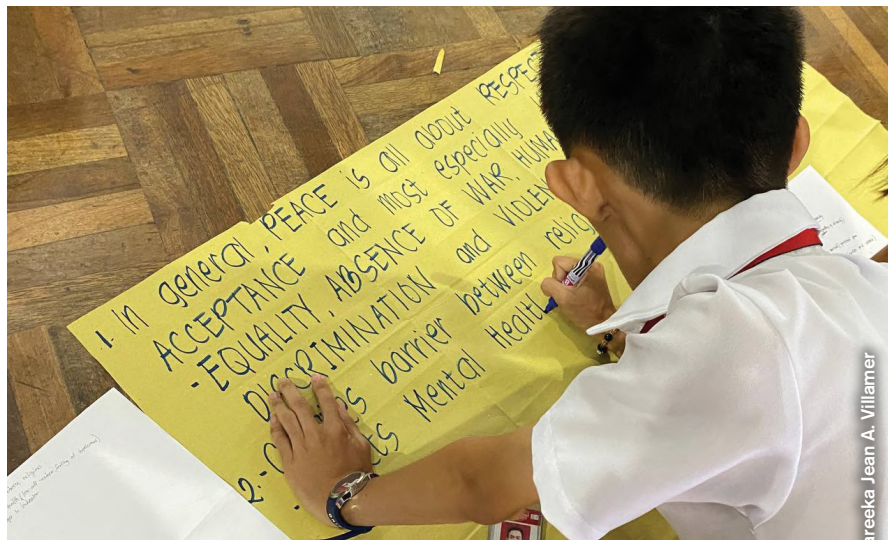 1. In general, PEACE is all about RESPEC
ACCEPTANCE and most especially
- EQUALITY, ABSENCE OF WAR, HUMA
DISCRIMINATION and VIOLEN
2. - barrier between relig
- Mental Healt
areeka Jean A. Villamer